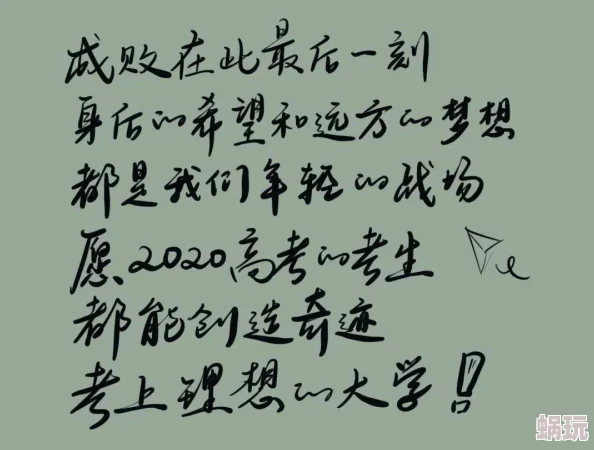 成败在此最后一刻
身后的希望和远方的梦想
都是我们年轻的战场
愿2020高考的考生
都能创造奇迹
考上理想的大学!
蜗玩